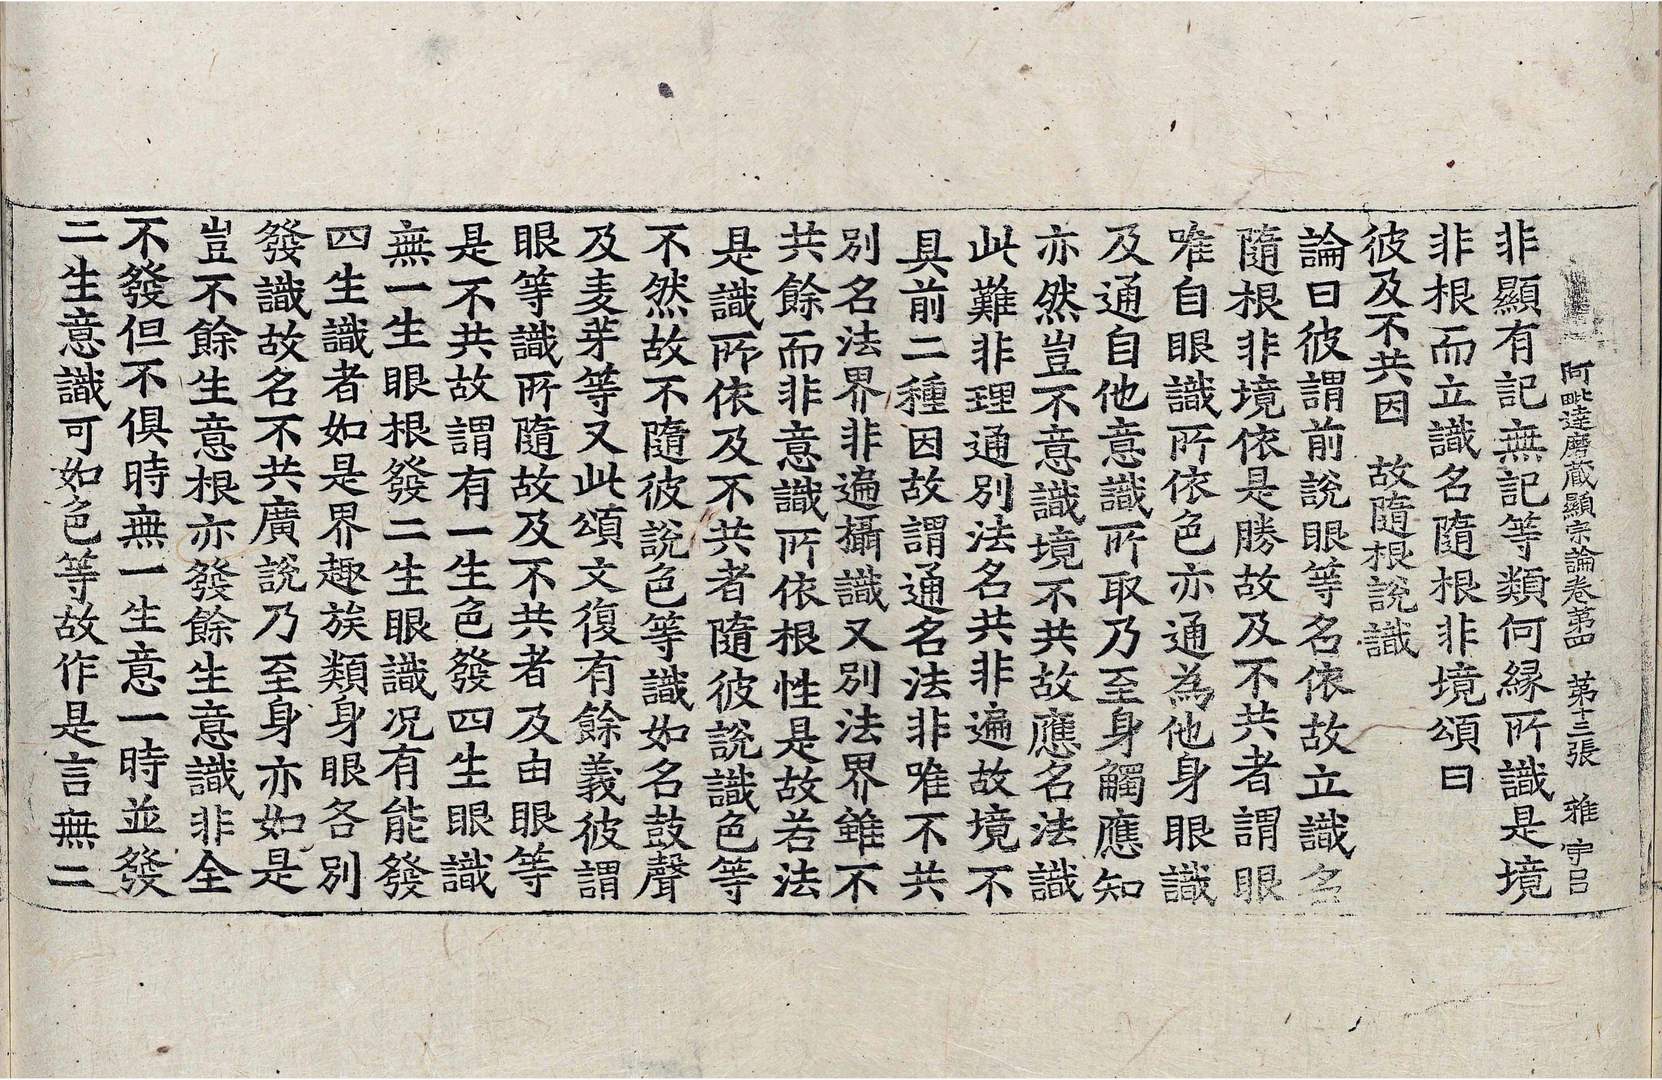 阿毗達磨藏顯宗論卷第四　第十三張　雅　宇呂
非顯有記無記等類何緣所識是境
非根而立識名隨根非境頌曰
彼及不共因　故隨根說識
論曰彼謂前說眼等名依故立識名
隨根非境依是勝故及不共者謂眼
唯自眼識所依色亦通為他身眼識
及通自他意識所取乃至身觸應知
亦然豈不意識境不共故應名法識
此難非理通別法名共非遍故境不
具前二種因故謂通名法非唯不共
別名法界非遍攝識又別法界雖不
共餘而非意識所依根性是故若法
是識所依及不共者隨彼說識色等
不然故不隨彼說色等識如名鼓聲
及麦芽等又此頌文復有餘義彼謂
眼等識所隨故及不共者及由眼等
是不共故謂有一生色發四生眼識
無一生眼根發二生眼識况有能發
四生識者如是界趣族類身眼各別
發識故名不共廣說乃至身亦如是
豈不餘生意根亦發餘生意識非全
不發但不俱時無一生意一時並發
二生意識可如色等故作是言無二